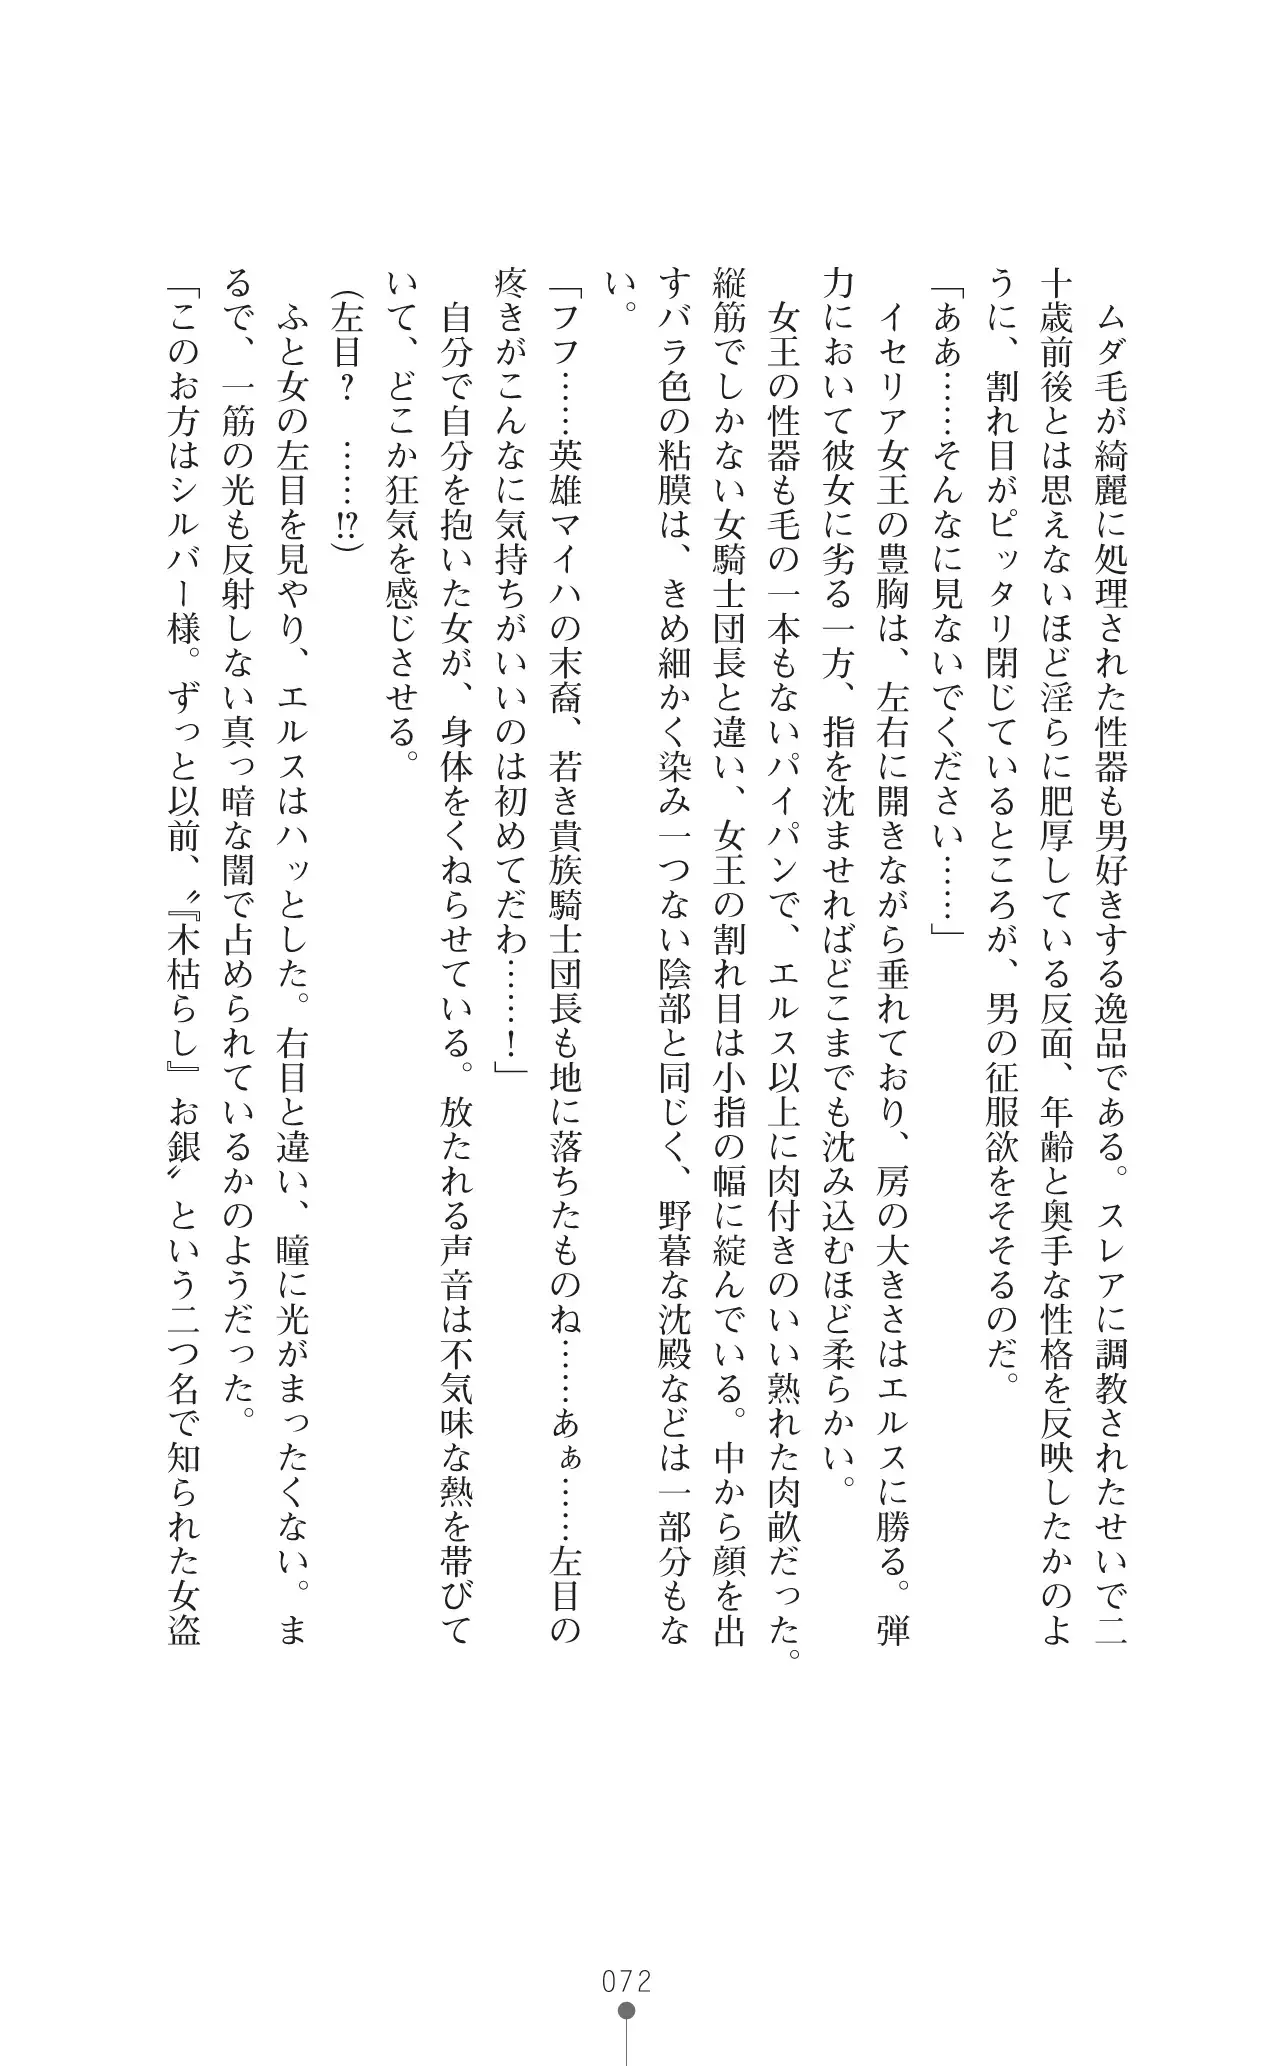 ムダ毛が綺麗に処理された性器も男好きする逸品である。スレアに調教されたせいで二
十歳前後とは思えないほど淫らに肥厚している反面、年齢と奥手な性格を反映したかのよ
うに、割れ目がピッタリ閉じているところが、男の征服欲をそそるのだ。
「ああ……そんなに見ないでください……」
イセリア女王の豊胸は、左右に開きながら垂れており、房の大きさはエルスに勝る。弾
力において彼女に劣る一方、指を沈ませればどこまでも沈み込むほど柔らかい。
女王の性器も毛の一本もないパイパンで、エルス以上に肉付きのいい熟れた肉畝だった。
縦筋でしかない女騎士団長と違い、女王の割れ目は小指の幅に綻んでいる。中から顔を出
すバラ色の粘膜は、きめ細かく染み一つない陰部と同じく、野暮な沈殿などは一部分もな
い。
「フフ……英雄マイハの末裔、若き貴族騎士団長も地に落ちたものね……あぁ……左目の
疼きがこんなに気持ちがいいのは初めてだわ……！」
自分で自分を抱いた女が、身体をくねらせている。放たれる声音は不気味な熱を帯びて
いて、どこか狂気を感じさせる。
（左目？　……!?）
ふと女の左目を見やり、エルスはハッとした。右目と違い、瞳に光がまったくない。ま
るで、一筋の光も反射しない真っ暗な闇で占められているかのようだった。
「このお方はシルバー様。ずっと以前、〝『木枯らし』お銀〟という二つ名で知られた女盗
072